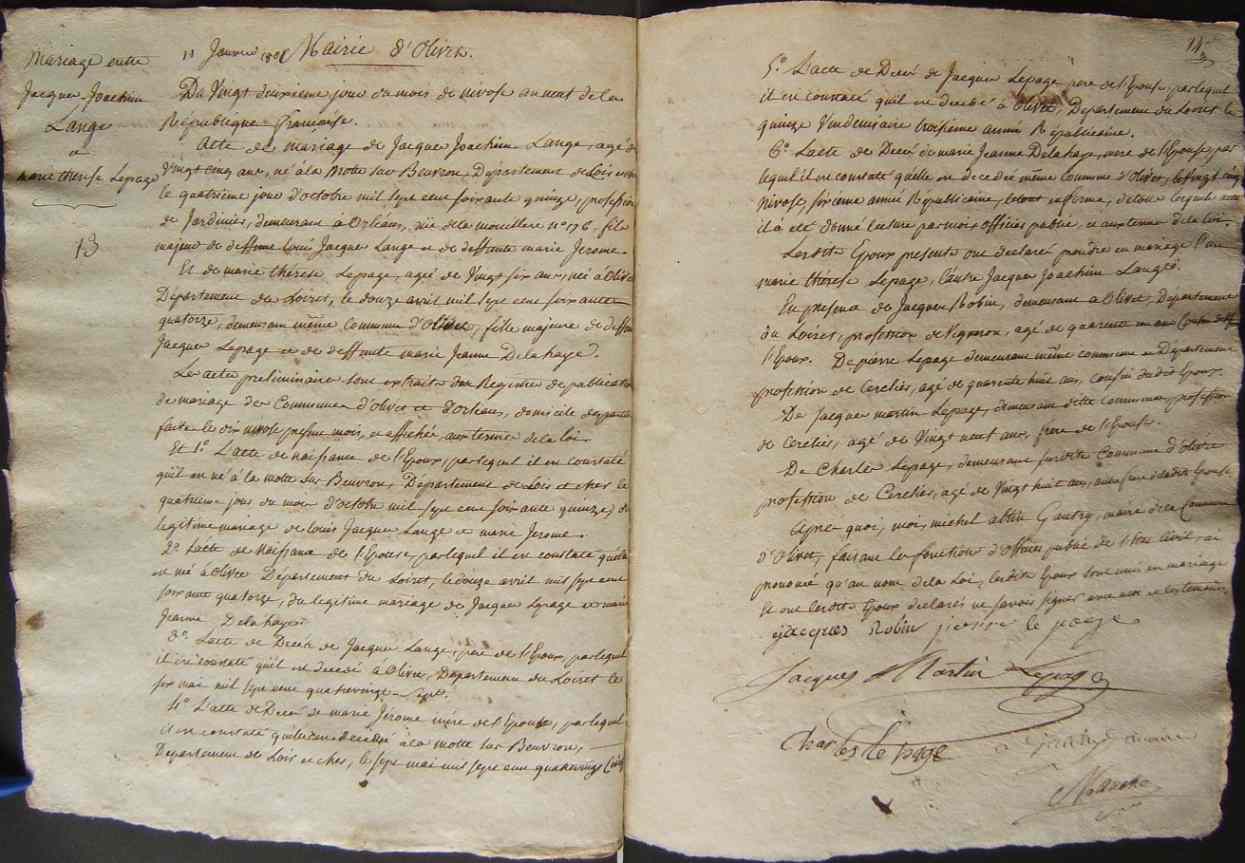 Mariage entre
Jacques Joachim
Lange
et
marie therese Lepage
13
11 Janvier 1801 Mairie d'Olivet.
Du Vingt deuxieme jour du mois de nivose an neuf de la
République française.
Acte de mariage de Jacques Joachim Lange, agé de
Vingt cinq ans, né à la Motte sur Beuvron, Département de Loir et cher
le quatrieme jour d'octobre mil sept cent soixante quinze, profession
de Jardinier, demeurant à Orléans, rue de la mouillere n° 176, fils
majeur de deffunt Louis Jacques Lange et de deffunte marie Jerome.
Et de marie thérese Lepage, agé de Vingt six ans, né à Olivet
Département du Loiret, le douze avril mil sept cent soixante
quatorze, demeurant même Commune d'Olivet, fille majeure de deffunt
Jacques Lepage et de deffunte marie Jeanne Delahaye.
Les actes preliminaires sont extraits des Registres de publications
de mariage des Communes d'olivet et d'orleans, domicile des parties
faite le dix nivose presens mois, et affichés, aux termes de la loi.
Et 1° L'acte de naissance de l'Epoux, par lequel il est constaté
qu'il est né à la motte sur Beuvron, Département de Loir et cher le
quatrieme jour du mois d'octobre mil sept cent soixante quinze, du
legitime mariage de louis Jacques Lange et marie Jerome.
2° L'acte de naissance de l'Epouse, par lequel il est constaté qu'elle
est né à Olivet Département du Loiret, le douze avril mil sept cent
soixante quatorze, du legitime mariage de Jacques Lepage et marie
Jeanne Delahaye.
3° L'acte de Decès de Jacques Lange, pere de l'Epoux, par lequel
il est constaté qu'il est decedé à Olivet, Département du Loiret le
six mai mil sept cent quatrevingt sept.
4° L'acte de Decès de marie Jérome mère de l'Epoux, par lequel
il est constaté qu'elle est decédée à la motte sur Beuvron,
Département de Loir et cher, le sept mai mil sept cent quatrevingt Cinq
14
5° L'acte de Decés de Jacques Lepage, pere de l'Epouse, par lequel
il est constaté qu'il est decedé à Olivet, Département du Loiret le
quinze Vendemiaire troisieme année Républicaine.
6° L'acte de Decés de marie Jeanne Delahaye, mere de l'Epouse, par
lequel il est constaté quelle est decedée même Commune d'Olivet, le vingt cinq
Nivose, sixieme année Républicaine, le tout en forme, de tous lesquels actes
il à été donné lecture par moi officier public, et aux termes de la loi.
Lesdits Epoux presents ont declaré prendre en mariage l'une
marie thérese Lepage, l'autre Jacques Joachim Lange.
En presence de Jacques Robin, demeurant à Olivet, Département
du Loiret, profession de Vigneron, agé de quarente un ans
l'Epoux. De pierre Lepage demeurant même commune et Département
profession de Cerclier, agé de quarente huit ans, cousin dudit Epoux.
De Jacques martin Lepage, demeurant ditte commune, profession
de Cerclier, agé de Vingt neuf ans, frere de l'Epouse.
De Charles Lepage, demeurant susditte Commune d'olivet
profession de Cerclier, agé de Vingt huit ans, aussi frere de ladite Epouse
Apres quoi, moi, michel Gautry, maire de la Commune
d'Olivet, faisant les fonctions d'Officier public de l'Etat Civil, ai
prononcé qu'au nom de la Loi, lesdits Epoux sont unis en mariage
Et ont lesdits Epoux declarés ne savoir signer avec nous et les temoins
jacques Robin pierre le page
Jacques Martin Lepage
Charles le page
Gautry maire